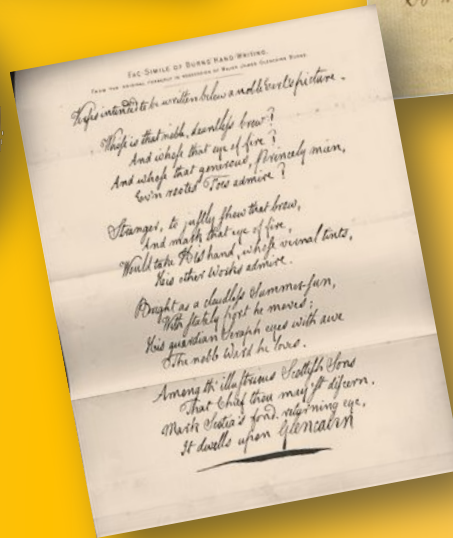 FAC-SIMILE OF BURNS' HAND-WRITING.
FROM THE ORIGINAL FORMERLY IN POSSESSION OF MAJOR JAMES GLENCAIRN BURNS
Verses intended to be written below a noble Earl's picture.
Whose is that noble, dauntless brow?
And whose that eye of fire?
And whose that generous, Princely mien,
Ev'n rooted Foes admire?
Stranger, to justly shew that brow,
And mark that eye of fire,
Would take His hand, whose vernal tints,
His other Works admire.
Bright as a cloudless Summer-sun,
With stately port he moves;
His guardian Seraph eyes with awe
The noble Ward he loves.
Among th' illustrious Scottish Sons
That Chief thou may'st discern,
Mark Scotia's fond, returning eye,
It dwells upon Glencairn